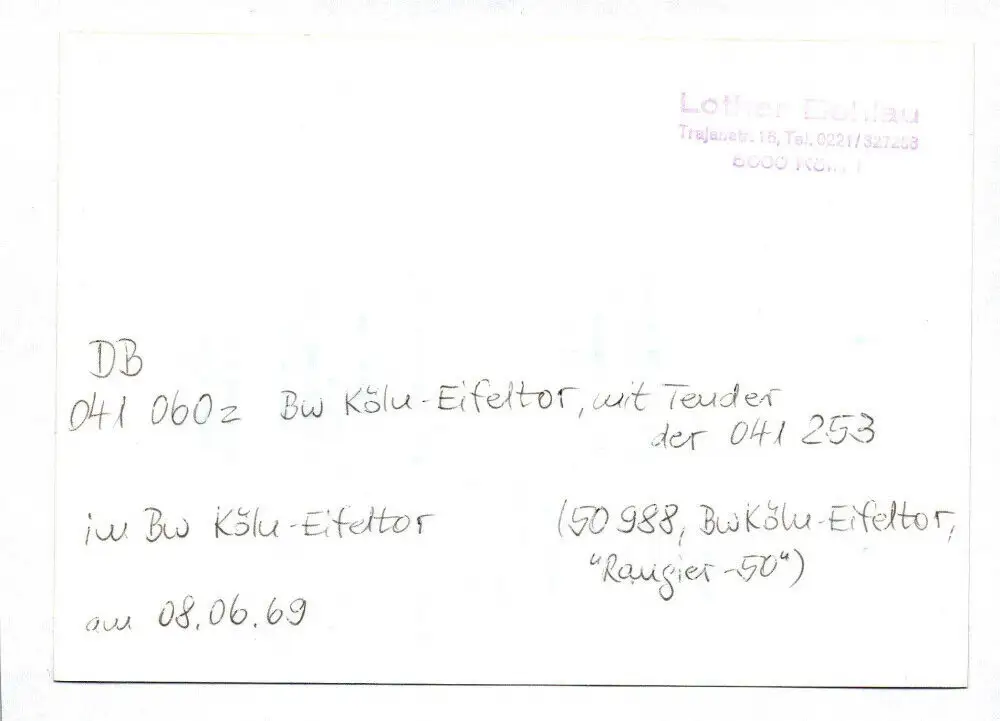 Lothar
Trajanstr. 18, Tel. 0221/327253
5000 Köln 1
DB
041 060z Bw Köln-Eifeltor, mit Tender
der 041 253
im Bw Köln-Eifeltor
(50 988, Bw Köln-Eifeltor,
"Rangier-50")
am 08.06.69